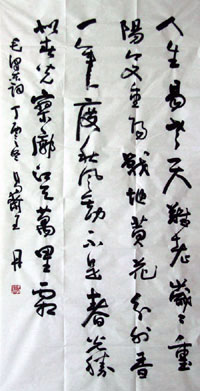 人生易老天難老歲々重
陽今又重陽戰地黄花分外香
一年一度秋风勁不是春光勝
如春光寥廓江天萬里霜
毛澤东詞丁